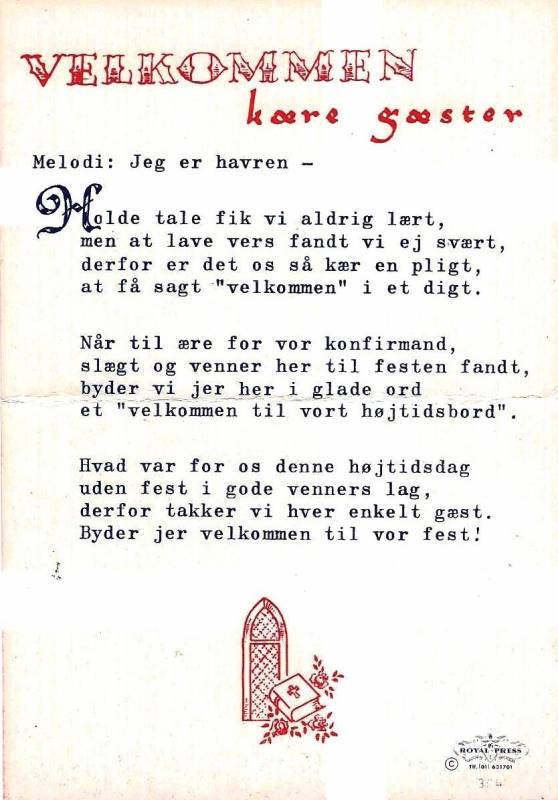 VELKOMMEN
kære gæster
Melodi: Jeg er havren –
Holde tale fik vi aldrig lært,
men at lave vers fandt vi ej svært,
derfor er det os så kær en pligt,
at få sagt "velkommen" i et digt.
Når til ære for vor konfirmand,
slægt og venner her til festen fandt,
byder vi jer her i glade ord
et "velkommen til vort højtidsbord".
Hvad var for os denne højtidsdag
uden fest i gode venners lag,
derfor takker vi hver enkelt gæst.
Byder jer velkommen til vor fest!
ROYAL PRESS
© Tlf. (01) 631701